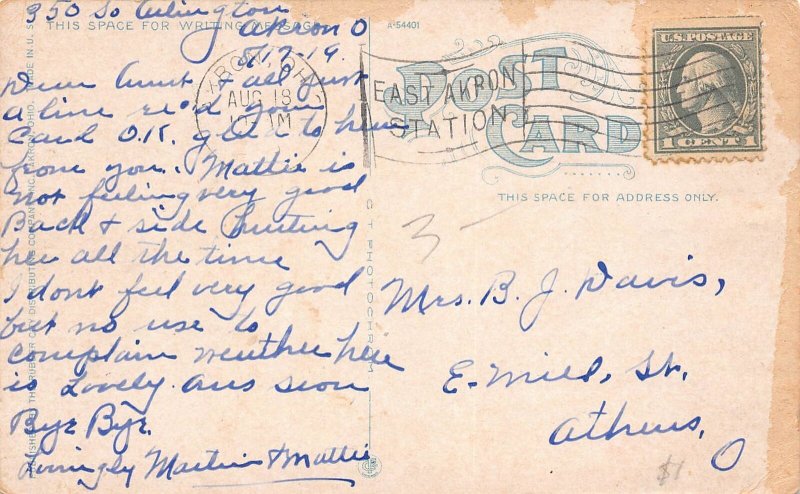 350 So Arlington
Akron O
8/17-19.
THIS SPACE FOR WRITING MESSAGE
Dear Aunt & all just
a line re'd your
Card O.K. glad to hear
from you. Mattie is
not feeling very good
Back & side hurting
her all the time
I dont feel very good
but no use to
complain weather here
is Lovely. Ans soon
Bye Bye.
Lovingly Martin & Mattie
PUBLISHED BY THE RUBBER CITY DISTRIBUTING COMPANY INC., AKRON, OHIO. MADE IN U.S.
C T PHOTOCHROM
A-54401
AKRON, OHIO
AUG 18
EAST AKRON
STATION
POST
CARD
U.S. POSTAGE
1 CENT 1
THIS SPACE FOR ADDRESS ONLY.
3-
Mrs. B. J. Davis,
E. Mill, St.
Athens,
O
$1